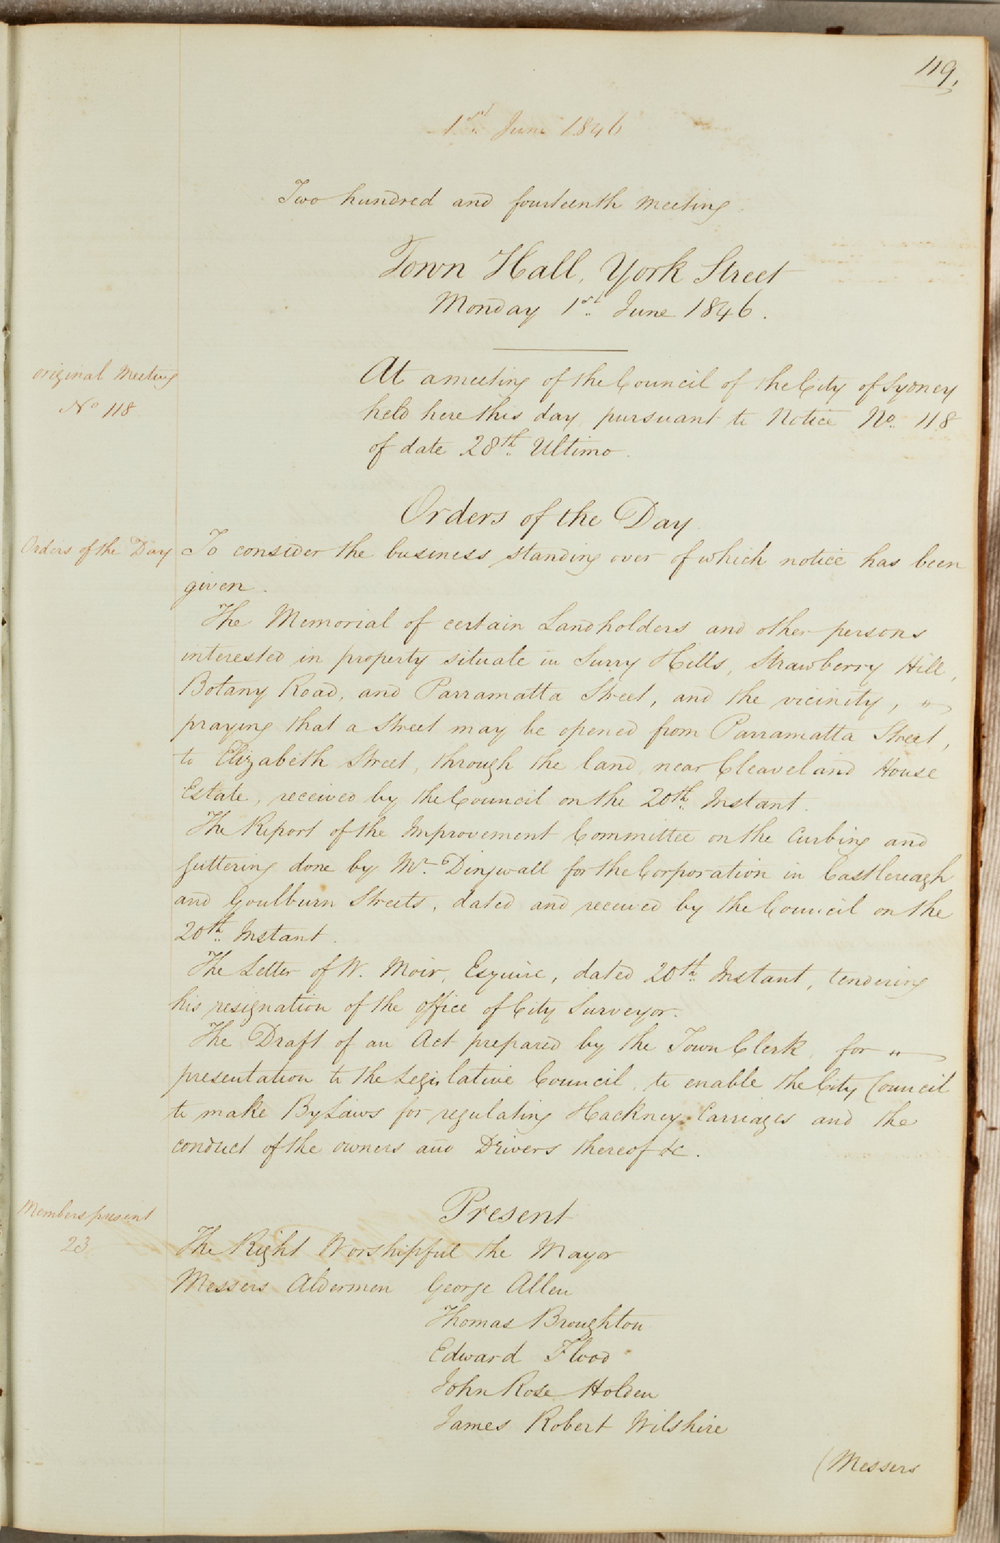 119.
1st. June 1846
Two hundred and fourteenth Meeting.
Town Hall, York Street
Monday 1st. June 1846.
original Meeting
No 118
At a meeting of the Council of the City of Sydney
held here this day pursuant to Notice No. 118
of date 28th. Ultimo.
Orders of the Day.
Orders of the Day
To consider the business standing over of which notice has been
given.
The Memorial of certain Landholders and other persons
interested in property situate in Surry Hills, Strawberry Hill,
Botany Road, and Parramatta Street, and the vicinity, "
praying that a Street may be opened from Parramatta Street,
to Elizabeth Street, through the land near Cleaveland House
Estate, received by the Council on the 20th. Instant.
The Report of the Improvement Committee on the Curbing and
guttering done by Mr. Dingwall for the Corporation in Castlereagh
and Goulburn Streets, dated and received by the Council on the
20th. Instant.
The Letter of W. Moir, Esquire, dated 20th. Instant, tendering
his resignation of the office of City Surveyor.
The Draft of an Act prepared by the Town Clerk, for "
presentation to the Legislative Council, to enable the City Council
to make By Laws for regulating Hackney Carriages and the
conduct of the owners and Drivers thereof &c.
Members present
23
Present
The Right Worshipful the Mayor
Messers Aldermen George Allen
Thomas Broughton
Edward Flood
John Rose Holden
James Robert Wilshire
(Messers